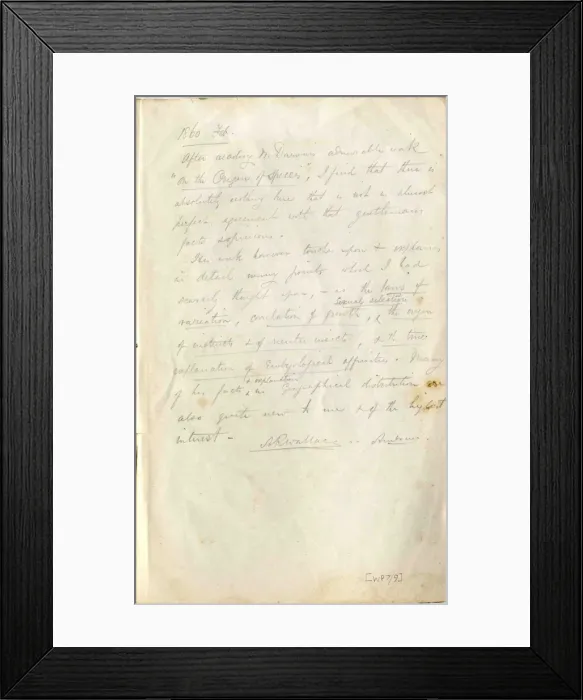 1860 Feb.
After reading Mr Darwin's admirable work
"On the Origin of Species", I find that there is
absolutely nothing here that is not in almost
perfect agreement with that gentlemans
facts & opinions.
His work however touches upon & explains
in detail many points which I had
scarcely thought upon, - as the laws of
variation, correlation of growth, sexual selection, the origin
of instincts & of neuter insects, & the true
explanation of Embryological affinities. Many
of his facts & explanations in Geographical distribution are
also quite new to me & of the highest
interest -
ARWallace - Amboina.
[WP7/9]